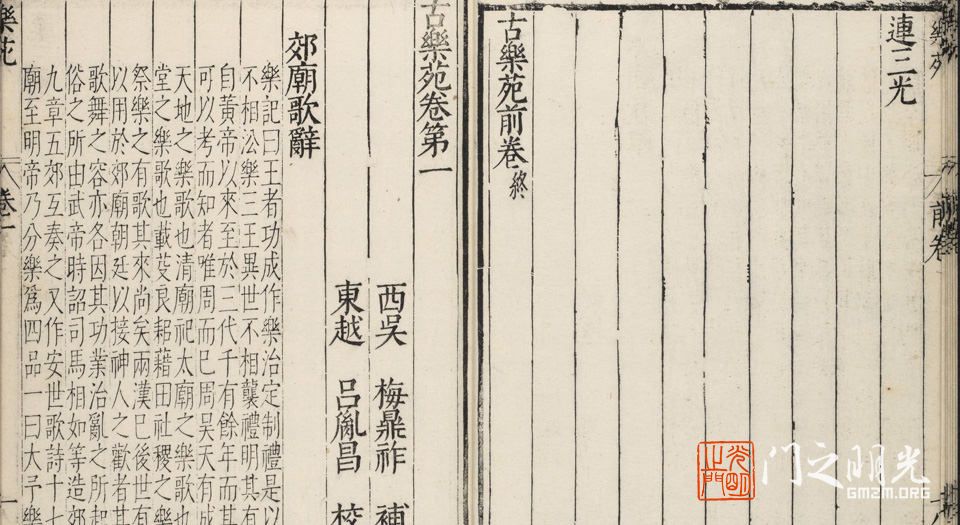 樂苑
前卷
連三光
古樂苑前卷 終
古樂苑卷第一
西吳 梅鼎祚 補
東越 呂胤昌 校
郊廟歌辭
樂記曰王者功成作樂治定制禮是以
不相沿樂三王異世不相襲禮明其有
自黃帝以來至於三代千有餘年而其
可以考而知者唯周而已周昊天有成
天地之樂歌也清廟祀太廟之樂歌也
堂之樂歌也載芟良耜藉田社稷之樂
祭樂之有歌其來尚矣兩漢已後世有
以用於郊廟朝廷以接神人之歡者其
歌舞之容亦各因其功業治亂之所起
俗之所由武帝時詔司馬相如等造郊
九章五郊互奏之又作安世歌詩十七
廟至明帝乃分樂爲四品一曰大予樂
樂苑
卷一
一
光明之門
门之明光
GMZM.ORG